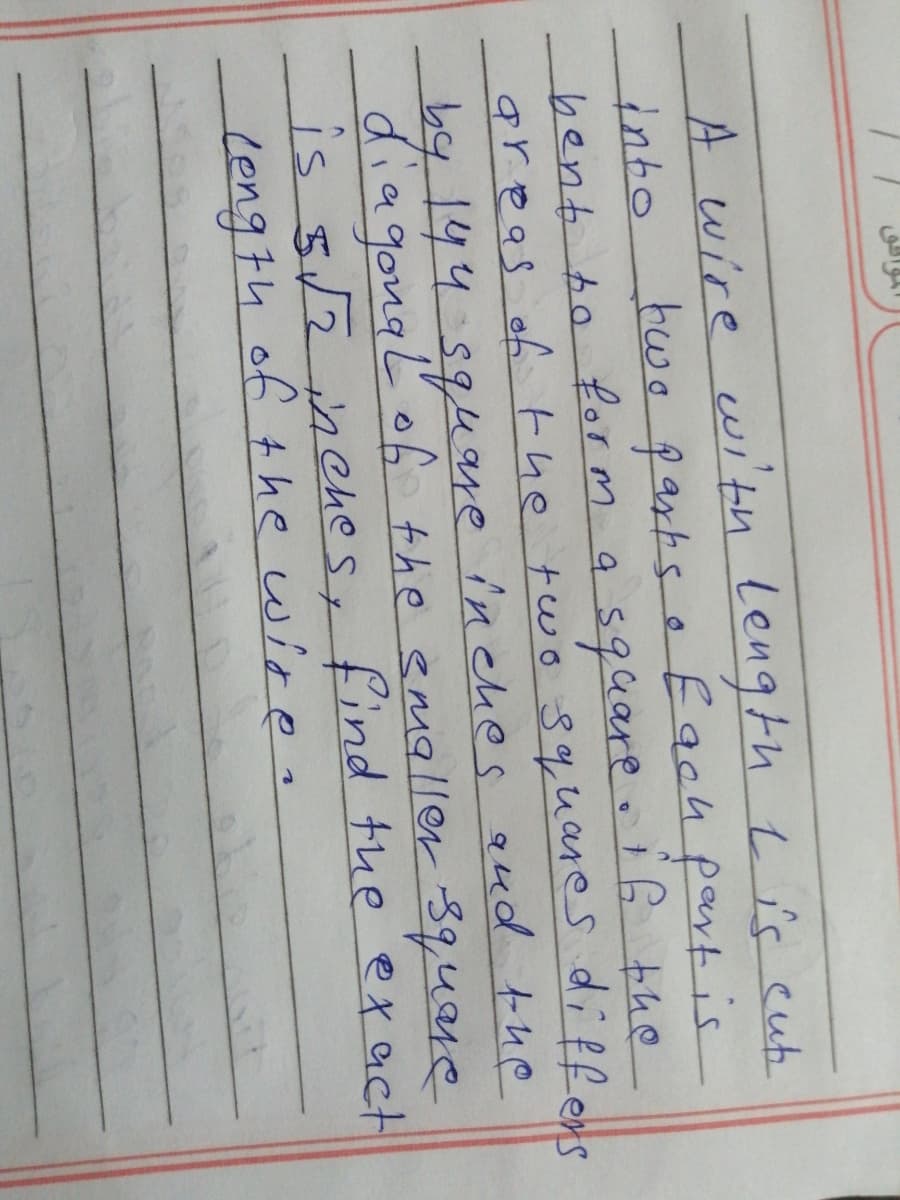 A wire with length L is cut
into two parts. Each part is
bent to form a square. if the
areas of the two squares differs
by 144 square inches and the
diagonal of the smaller square
is 5√2 inches, find the exact
length of the wire.